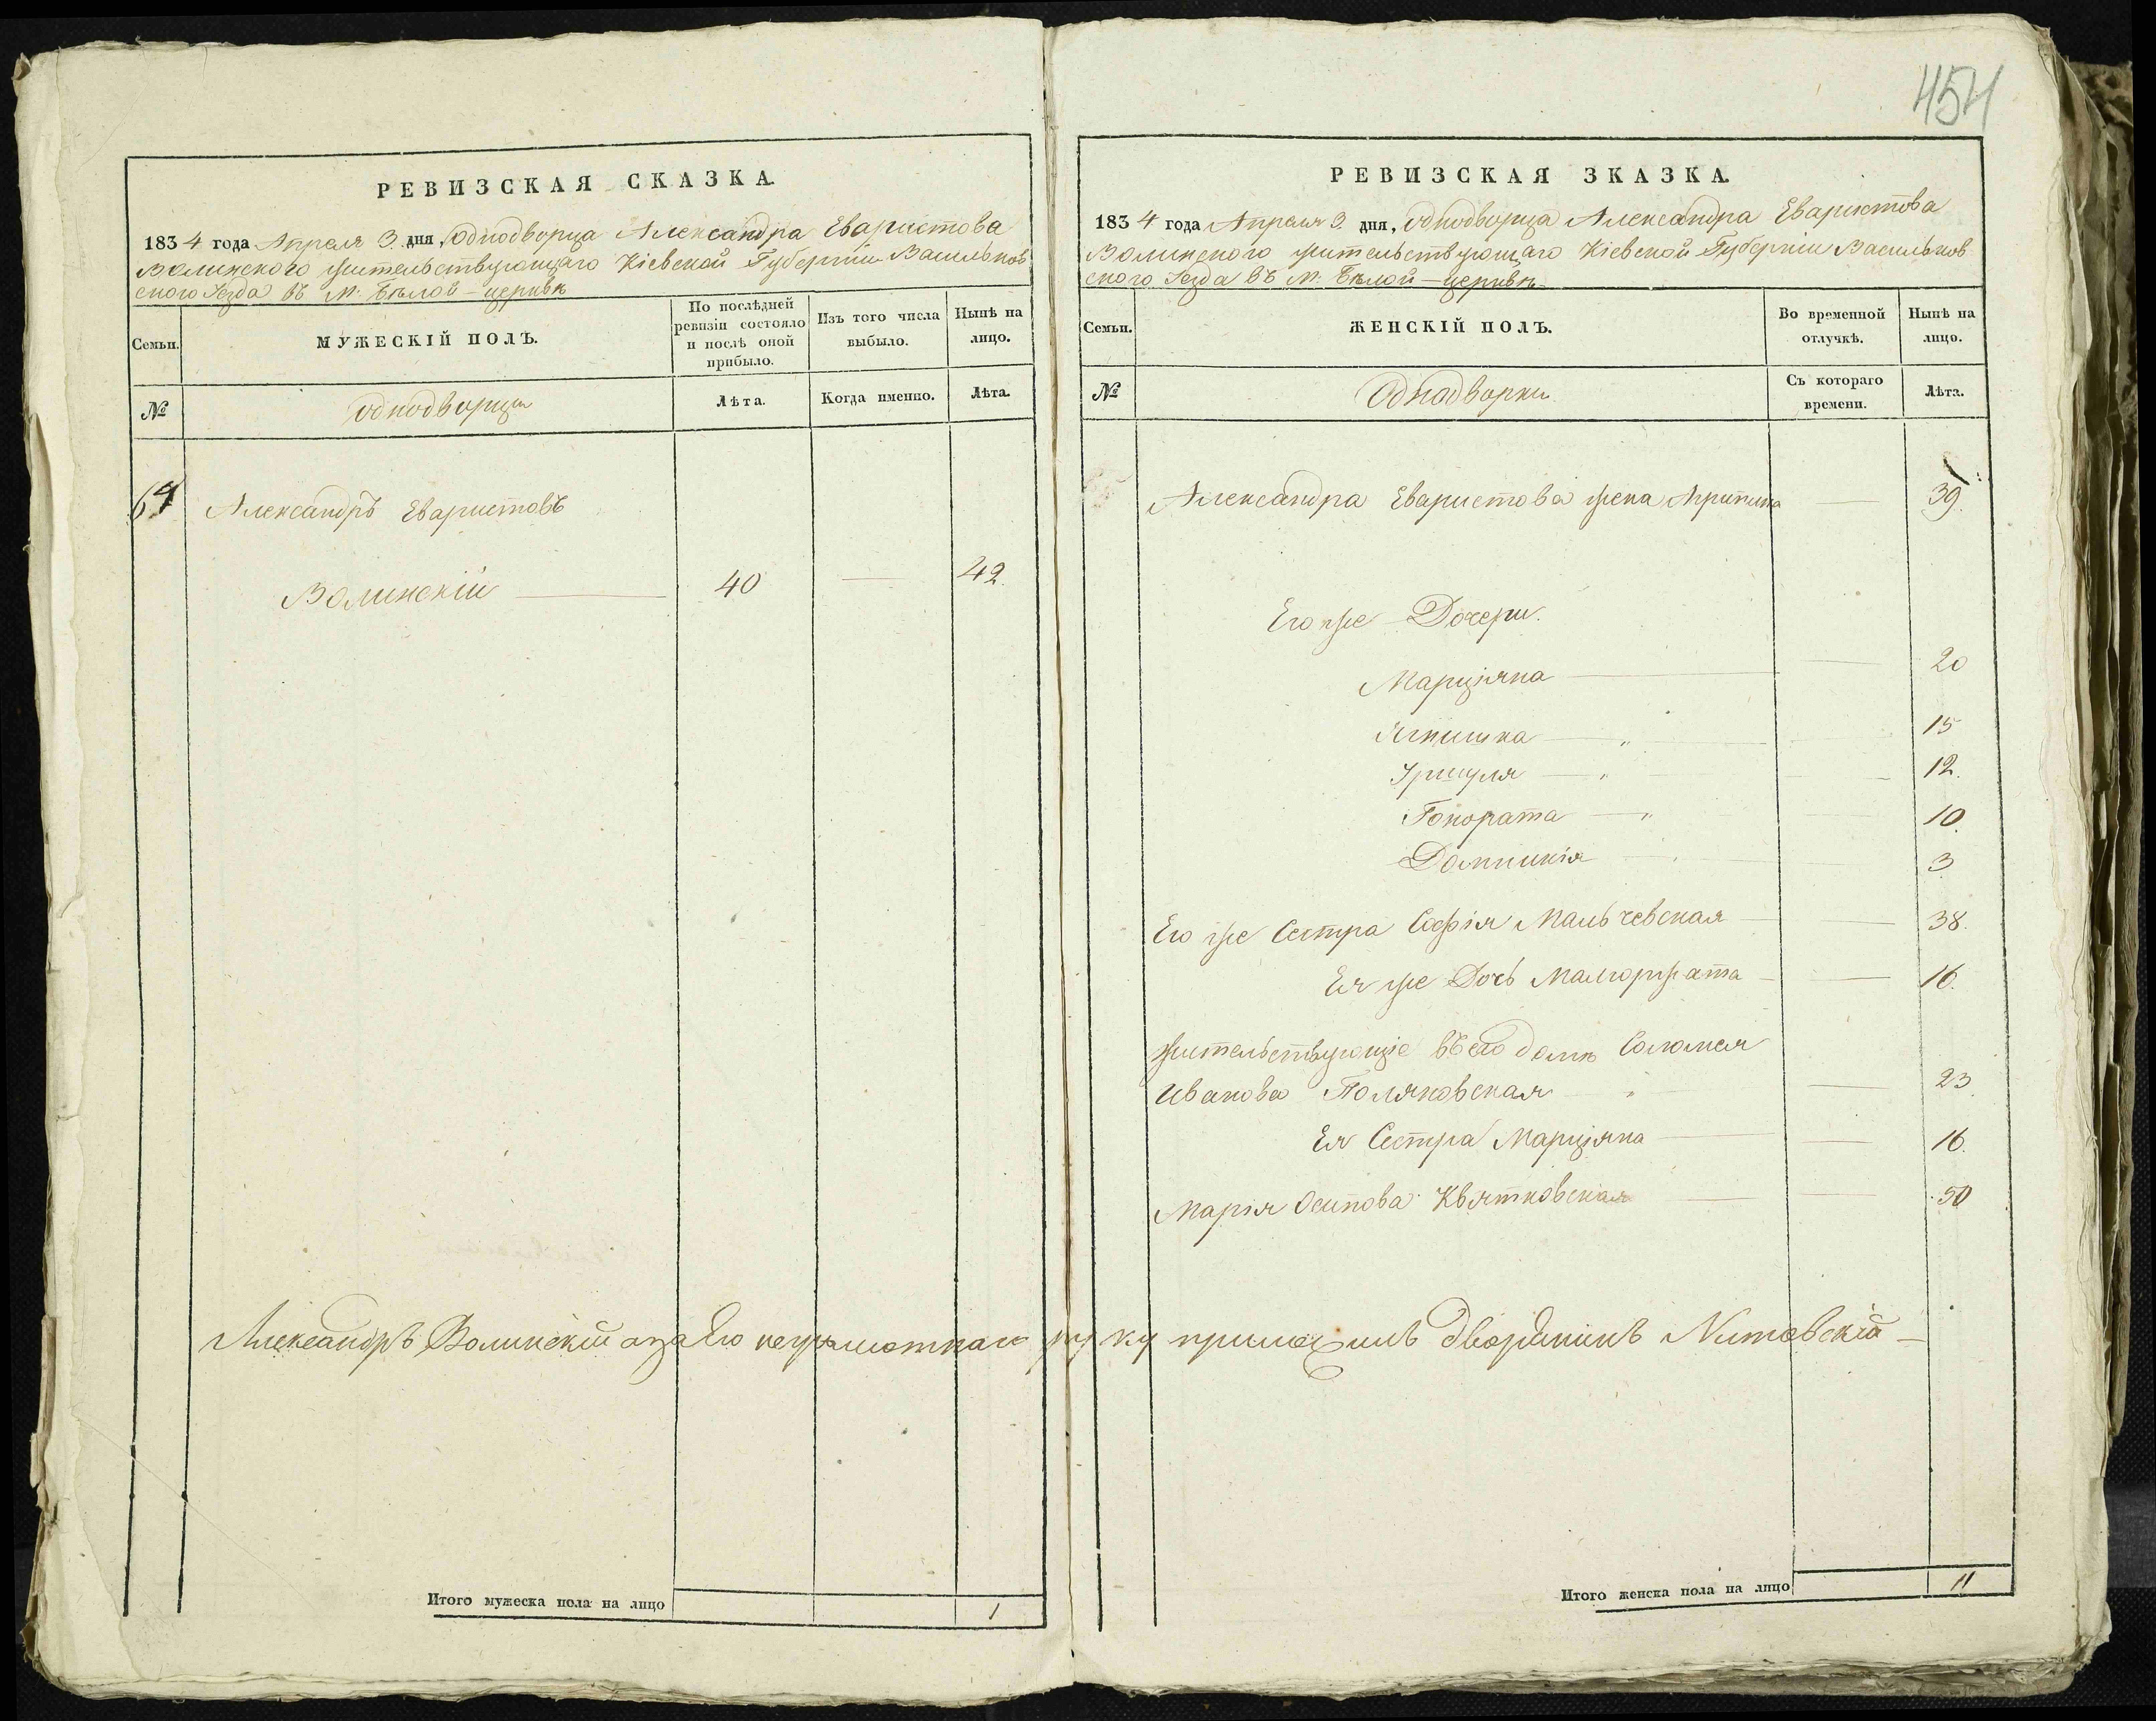 454
РЕВИЗСКАЯ СКАЗКА.
1834 года Апреля 3 дня, Однодворца Александра Еваристова
Волинского жительствующаго Кіевской Губерніи Васильков
ского Уезда въ М: Белой-церкве
Семьи.
МУЖЕСКІЙ ПОЛЪ.
По послѣдней
ревизіи состояло
и послѣ оной
прибыло.
Изъ того числа
выбыло.
Нынѣ на
лицо.
№
Однодворци
Лѣта.
Когда именно.
Лѣта.
64 Александръ Еваристовъ
Волинскій 40 — 42
Александръ Волинскій а за Его неграмотнаго руку приложилъ дворянинъ
Итого мужеска пола на лицо 1
РЕВИЗСКАЯ ЗКАЗКА.
1834 года Апреля 3 дня, Однодворца Александра Еваристова
Волинского жительствующаго Кіевской Губерніи Васильков
ского Уезда въ М: Белой-церкве
Семьи.
ЖЕНСКІЙ ПОЛЪ.
Во временной
отлучкѣ.
Нынѣ на
лицо.
№
Однодворки
Съ котораго
времени.
Лѣта.
Александра Еваристова жена Агрипина — 39.
Его же Дочери.
Марціяна — 20
Ягнишка — " — 15
Урщуля — " — 12.
Гонората — " — 10.
Доминикія — 3
Его же Сестра Софія Мальчевская — 38.
Ея же Дочь Малгоржата — 16.
жительствующіе въ его доме Соломея
Иванова Поляновская " — 23
Ея Сестра Марціяна — 16.
Марія Осипова Квятковская — 50
Итого женска пола на лицо 11